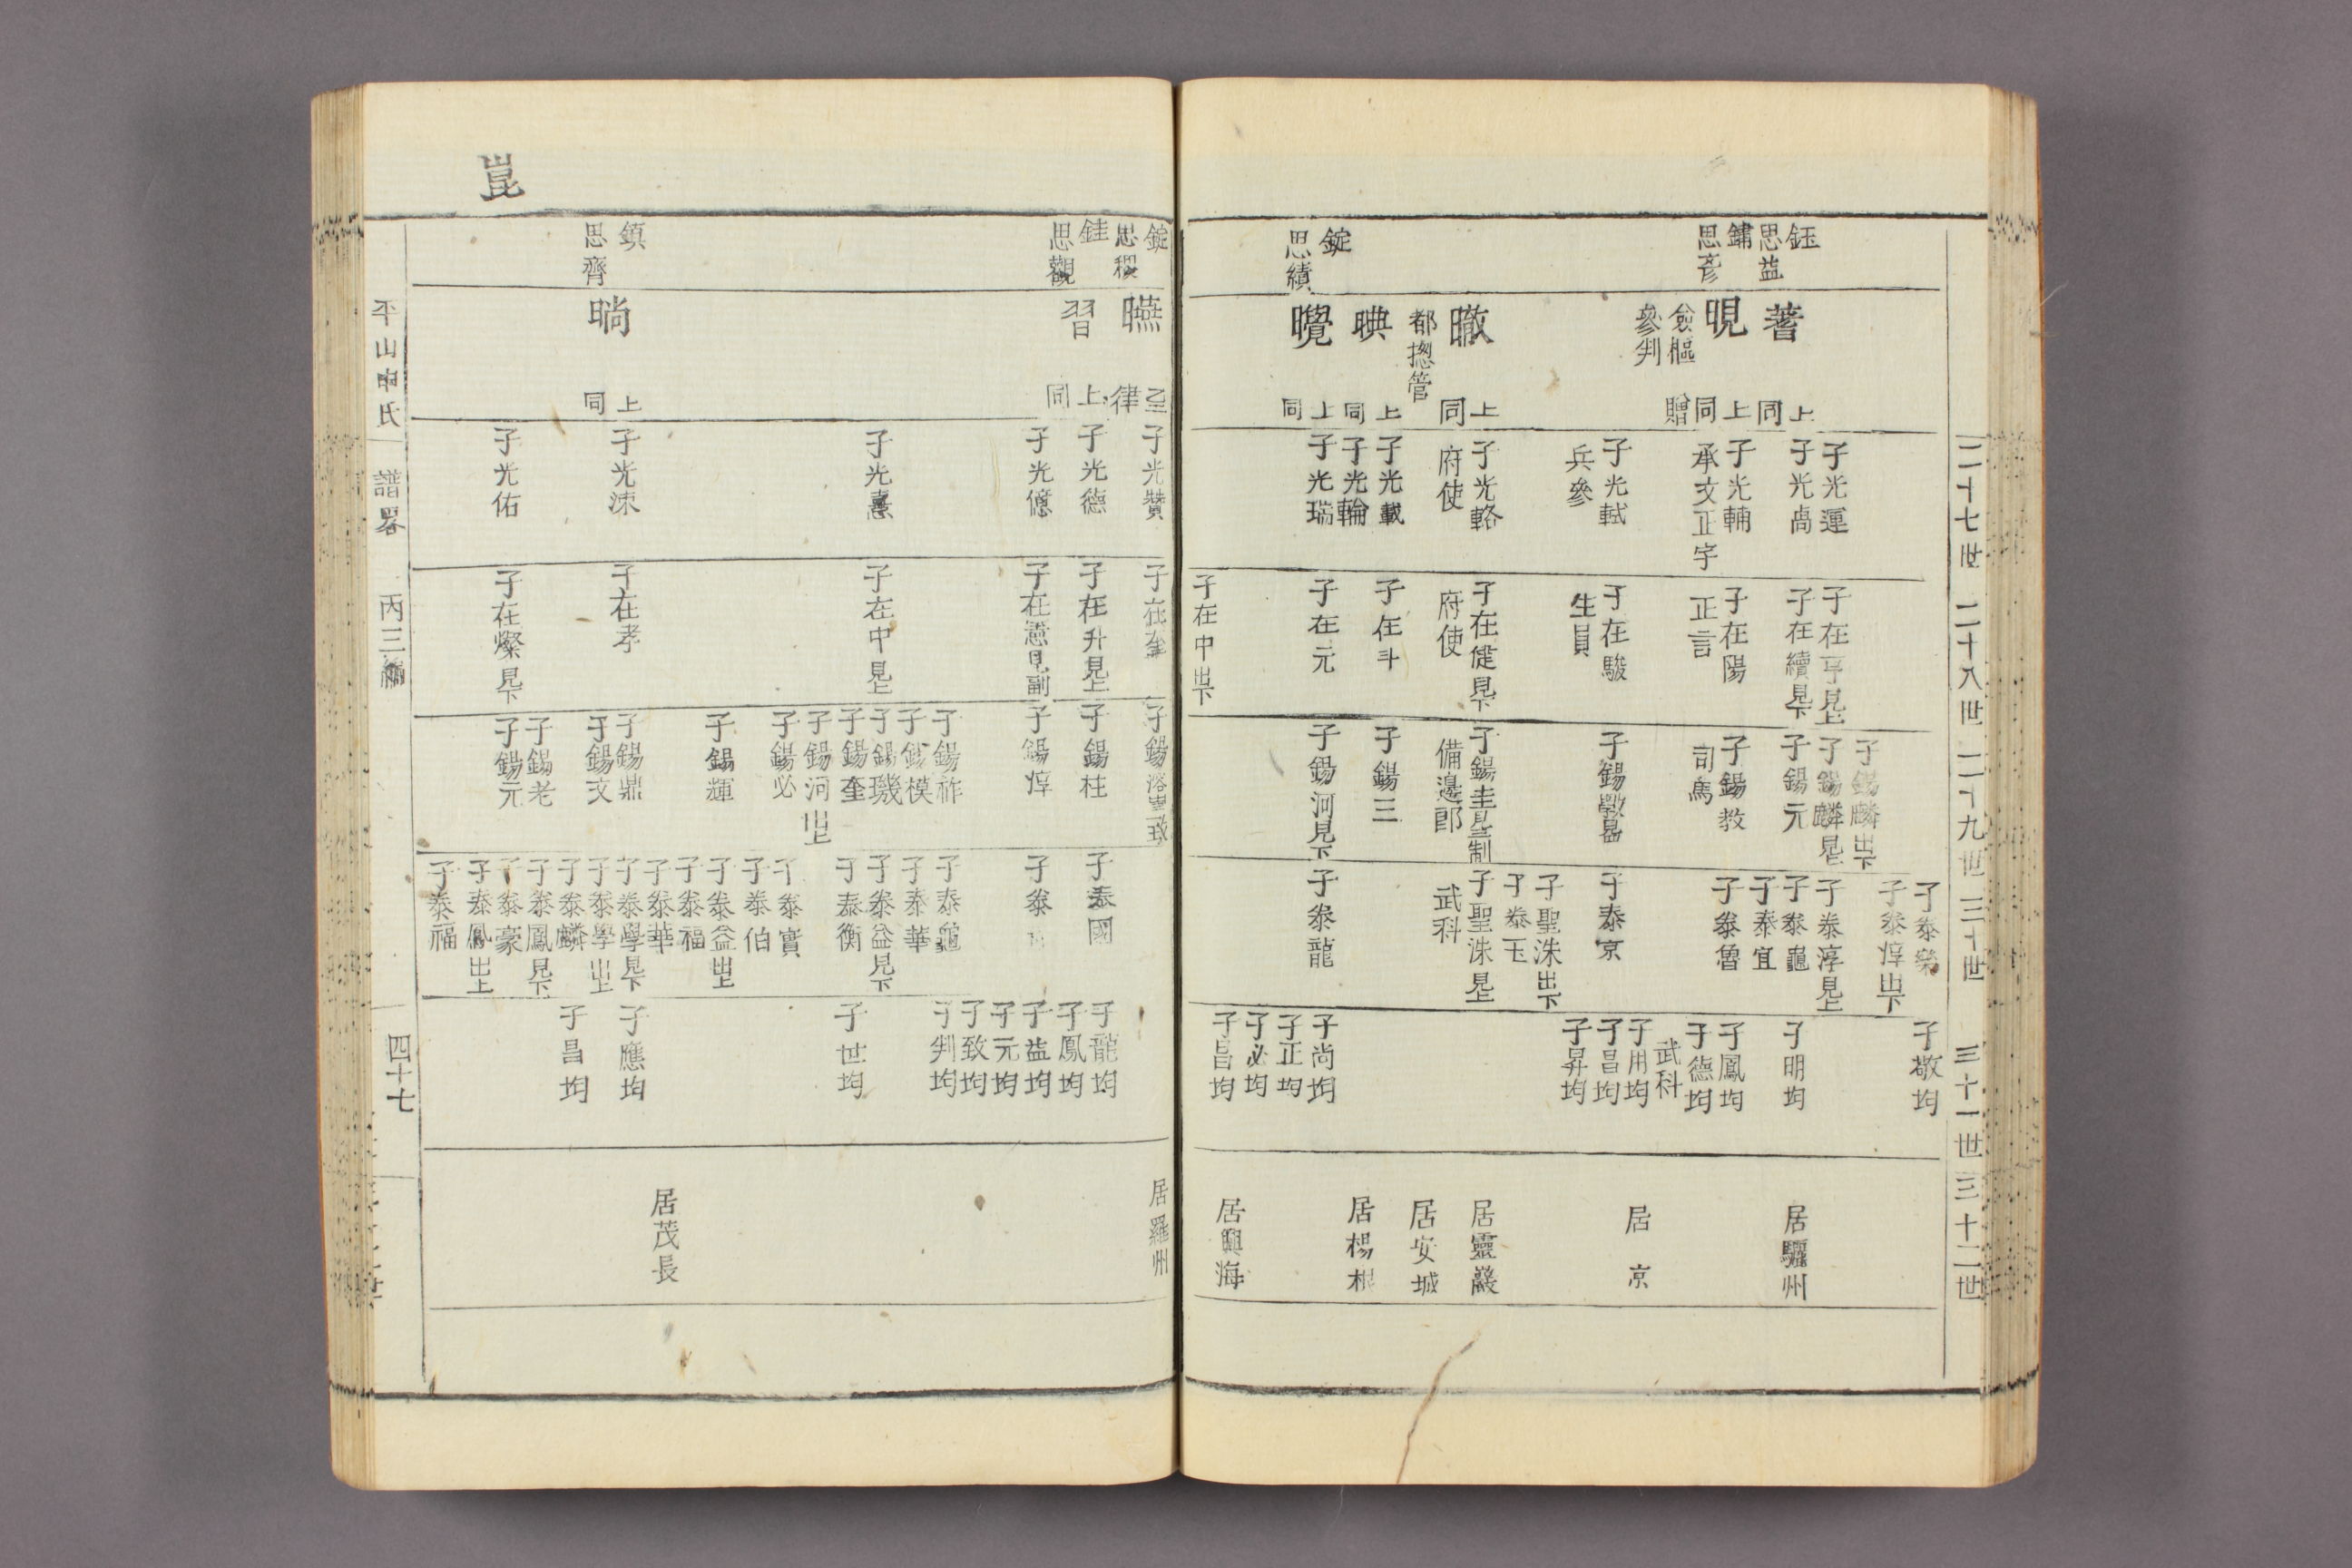 二十七世
二十八世
二十九世
三十世
三十一世
三十二世
鈺
思益
鏞
思彦
錠
思績
蓍
上同
晛
上同
贈
僉樞
參判
㬚
上同
都摠管
㬌
上同
上同
子光運
子光卨
子光輔
承文正字
子光軾
兵參
子光輅
府使
子光載
子光輪
子光瑞
子在亨見上
子在續見下
子在陽
正言
子在駿
生員
子在健見下
府使
子在斗
子在元
子在中出下
子錫麟出下
子錫麟見上
子錫元
子錫教
司馬
子錫圭
備邊郎
子錫三
子錫河見下
子泰榮
子泰惇出下
子泰淳見上
子泰龜
子泰宜
子泰魯
子泰京
子聖洙出下
子泰玉
子聖洙見上
武科
子泰龍
子敬均
子明均
子鳳均
子德均
武科
子用均
子昌均
子昇均
子尚均
子正均
子必均
子昌均
居驪州
居京
居靈巖
居安城
居楊根
居興海
崑
錠
思稷
銈
思觀
鎮
思齊
曣
習
上同
晌
上同
子光贊
子光德
子光億
子光憙
子光洙
子光佑
子在奎
子在升見上
子在憲見副
子在中見上
子在孝
子在燦見下
子錫柱
子錫惇
子錫祚
子錫模
子錫璣
子錫奎
子錫河出上
子錫必
子錫輝
子錫鼎
子錫文
子錫老
子錫元
子泰國
子泰龜
子泰華
子泰益見下
子泰衡
子泰實
子泰伯
子泰益出上
子泰福
子泰華
子泰學見下
子泰學出上
子泰麟
子泰鳳見下
子泰豪
子泰鳳出上
子泰福
子龍均
子鳳均
子益均
子元均
子致均
子判均
子世均
子應均
子昌均
居羅州
居茂長
平山申氏
譜畧
丙三編
四十七